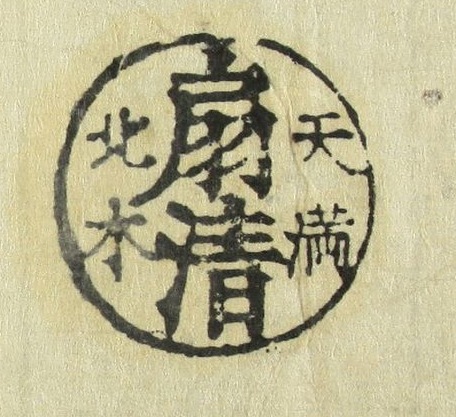 天満
扇清
北木